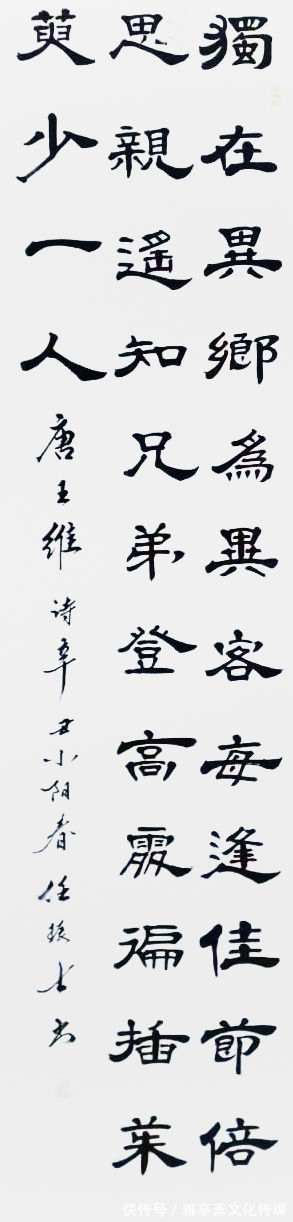 獨在異鄉為異客每逢佳節倍
思親遙知兄弟登高處徧插茱
萸少一人
唐王維诗辛丑小阳春任士书
快传号 / 雅亭斋文化传媒